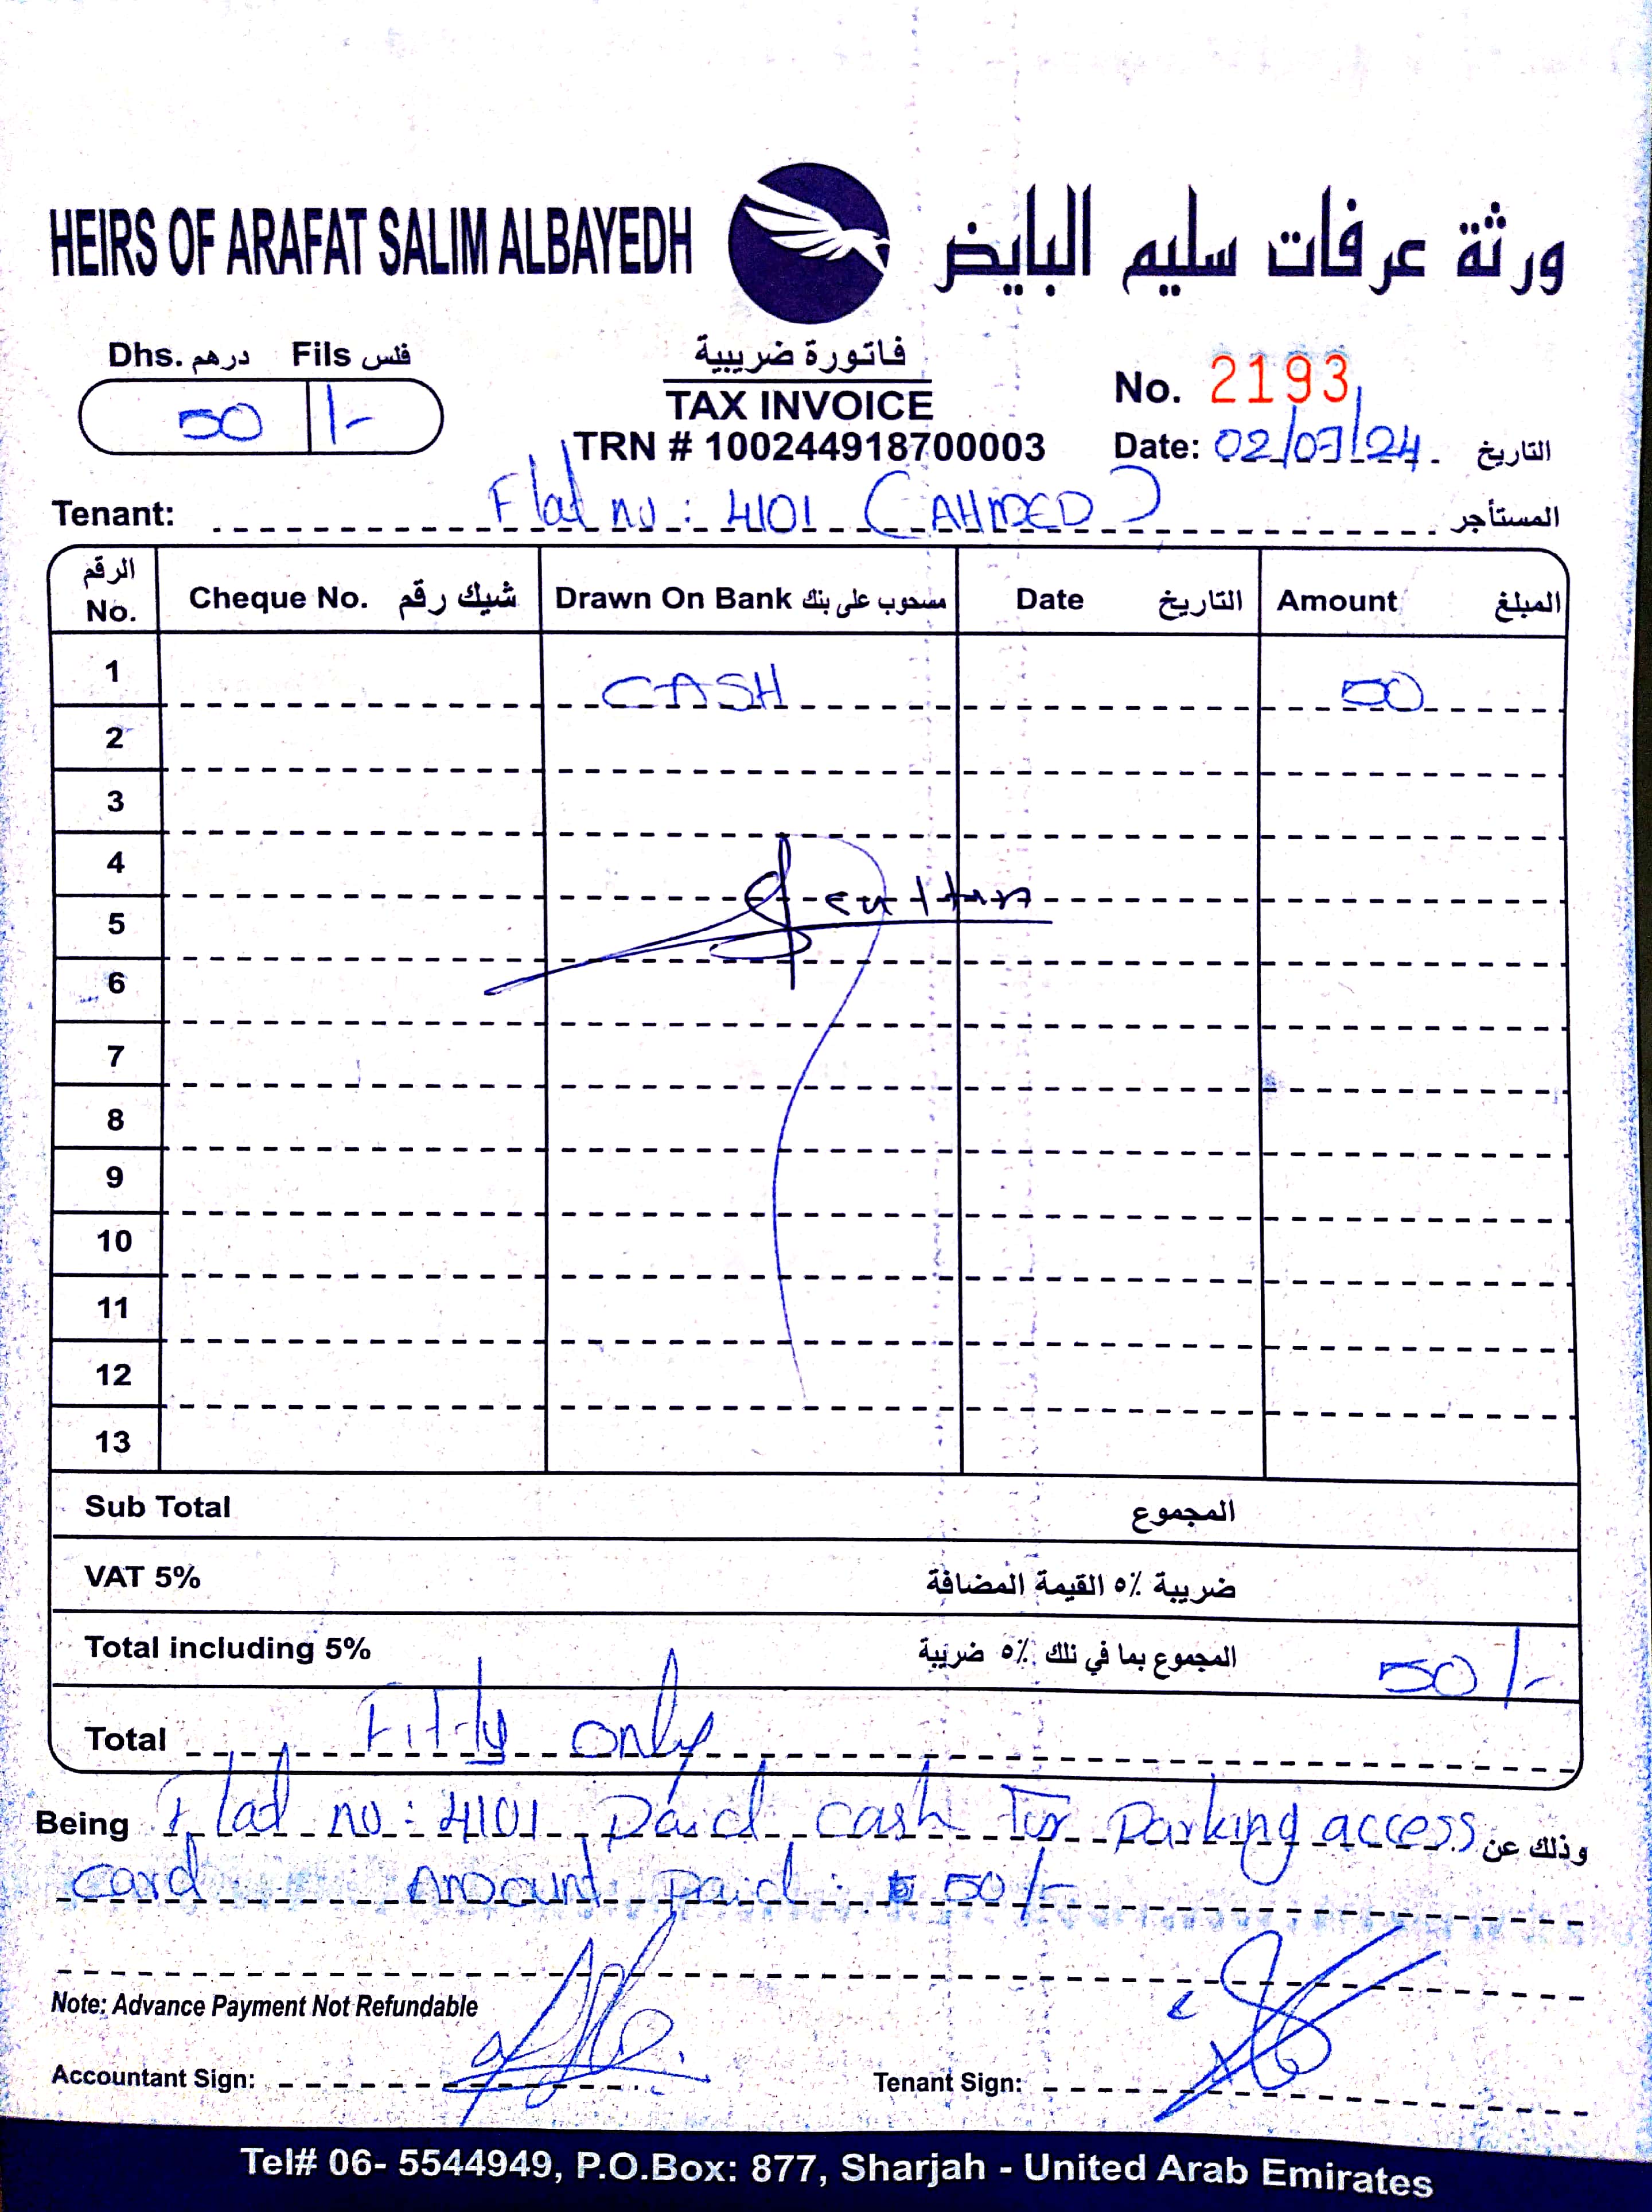 HEIRS OF ARAFAT SALIM ALBAYEDH
ورثة عرفات سليم البايض
Dhs. درهم Fils فلس
50 /-
فاتورة ضريبية
TAX INVOICE
TRN # 100244918700003
No. 2193
Date: 02/07/24. التاريخ
Tenant: Flat no: 4101 (AHMED) المستأجر
الرقم No. Cheque No. شيك رقم Drawn On Bank مسحوب على بنك Date التاريخ Amount المبلغ
1 CASH 50
2
3
4
5
6
7
8
9
10
11
12
13
Sub Total المجموع
VAT 5% ضريبة ٥٪ القيمة المضافة
Total including 5% المجموع بما في ذلك ٥٪ ضريبة 50/-
Total Fifty only
Being Flat no: 4101 Paid cash for Parking access وذلك عن
card Amount paid: 50/-
Note: Advance Payment Not Refundable
Accountant Sign: Tenant Sign:
Tel# 06- 5544949, P.O.Box: 877, Sharjah - United Arab Emirates